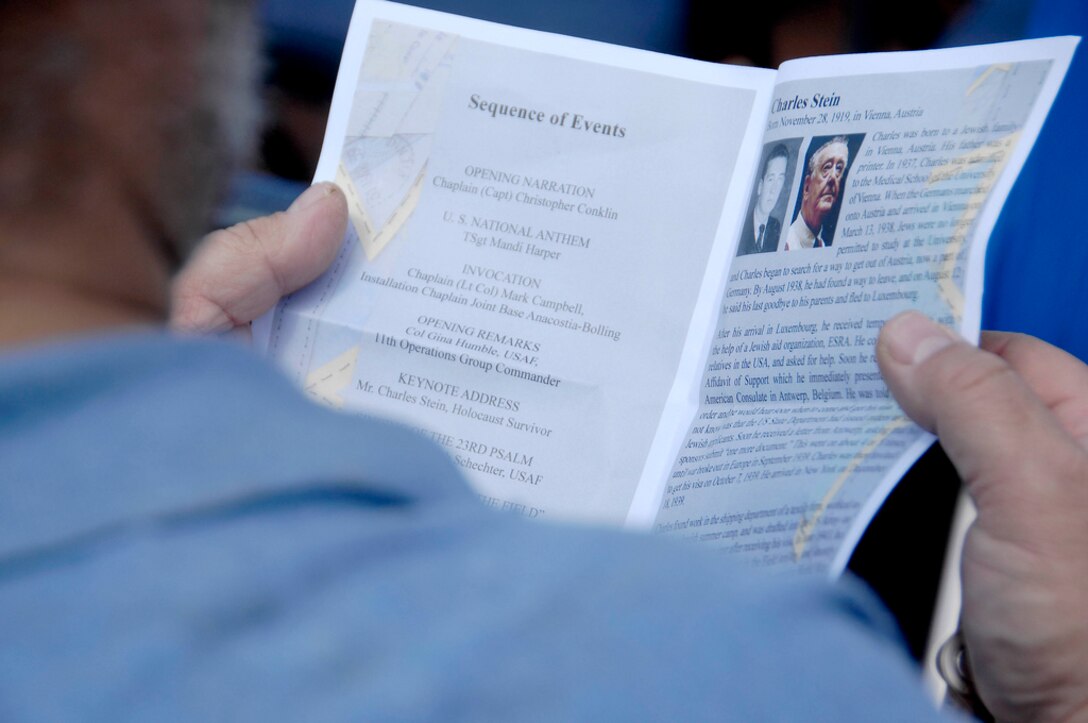 Sequence of Events
OPENING NARRATION
Chaplain (Capt) Christopher Conklin
U. S. NATIONAL ANTHEM
TSgt Mandi Harper
INVOCATION
Chaplain (Lt Col) Mark Campbell,
Installation Chaplain Joint Base Anacostia-Bolling
OPENING REMARKS
Col Gina Humble, USAF,
11th Operations Group Commander
KEYNOTE ADDRESS
Mr. Charles Stein, Holocaust Survivor
OF THE 23RD PSALM
Schechter, USAF
THE FIELD"
Charles Stein
Born November 28, 1919, in Vienna, Austria
Charles was born to a Jewish family
in Vienna, Austria. His father was a
printer. In 1937, Charles was
to the Medical School of the University
of Vienna. When the Germans marched
onto Austria and arrived in Vienna
March 13, 1938, Jews were no
permitted to study at the University,
and Charles began to search for a way to get out of Austria, now a part of
Germany. By August 1938, he had found a way to leave, and on August 12,
he said his last goodbye to his parents and fled to Luxembourg.
After his arrival in Luxembourg, he received
the help of a Jewish aid organization, ESRA. He
relatives in the USA, and asked for help. Soon he
Affidavit of Support which he immediately
American Consulate in Antwerp, Belgium. He was told
order and he would hear
not know was that the US State Department had
Jewish applicants. Soon he received a letter from Antwerp,
sponsors submit "one more document." This went on
until war broke out in Europe in September 1939. Charles was
to get his visa on October 7, 1939. He arrived in New York on
18, 1939.
Charles found work in the shipping department of a
summer camp, and was drafted
after receiving his